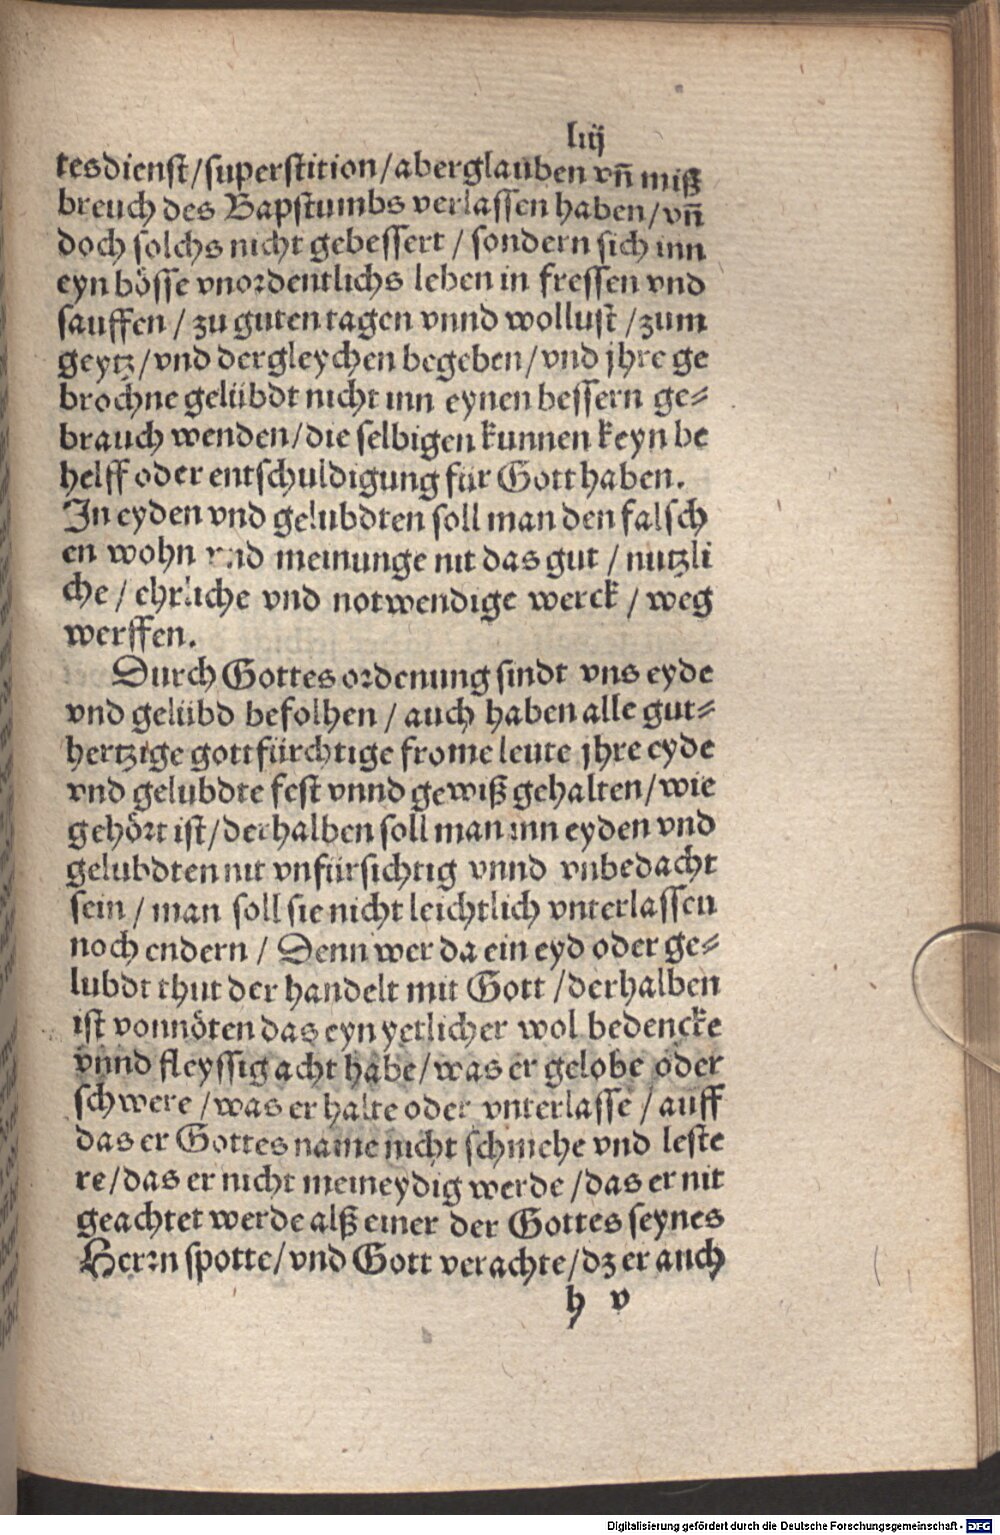 liij
tesdienst/superstition/aberglauben vñ miß
breuch des Bapstumbs verlassen haben/vñ
doch solchs nicht gebessert / sondern sich inn
eyn bösse vnordentlichs leben in fressen vnd
sauffen / zu guten tagen vnnd wollust /zum
geytz/vnd dergleychen begeben/vnd jhre ge
brochne gelübdt nicht inn eynen bessern ge⸗
brauch wenden/die selbigen kunnen keyn be
helff oder entschuldigung für Gott haben.
In eyden vnd gelubdten soll man den falsch
en wohn vnd meinunge nit das gut / nutzli
che / ehrliche vnd notwendige werck / weg
werffen.
Durch Gottes ordenung sindt vns eyde
vnd gelübd befolhen / auch haben alle gut⸗
hertzige gottfürchtige frome leute jhre eyde
vnd gelubdte fest vnnd gewiß gehalten/wie
gehört ist/derhalben soll man inn eyden vnd
gelubdten nit vnfürsichtig vnnd vnbedacht
sein / man soll sie nicht leichtlich vnterlassen
noch endern / Denn wer da ein eyd oder ge⸗
lubdt thut der handelt mit Gott /derhalben
ist vonnöten das eyn yetlicher wol bedencke
vnnd fleyssig acht habe/was er gelobe oder
schwere /was er halte oder vnterlasse / auff
das er Gottes name nicht schmehe vnd leste
re/das er nicht meineydig werde /das er nit
geachtet werde alß einer der Gottes seynes
Herrn spotte/vnd Gott verachte/dz er auch
h v
Digitalisierung gefördert durch die Deutsche Forschungsgemeinschaft - DFG